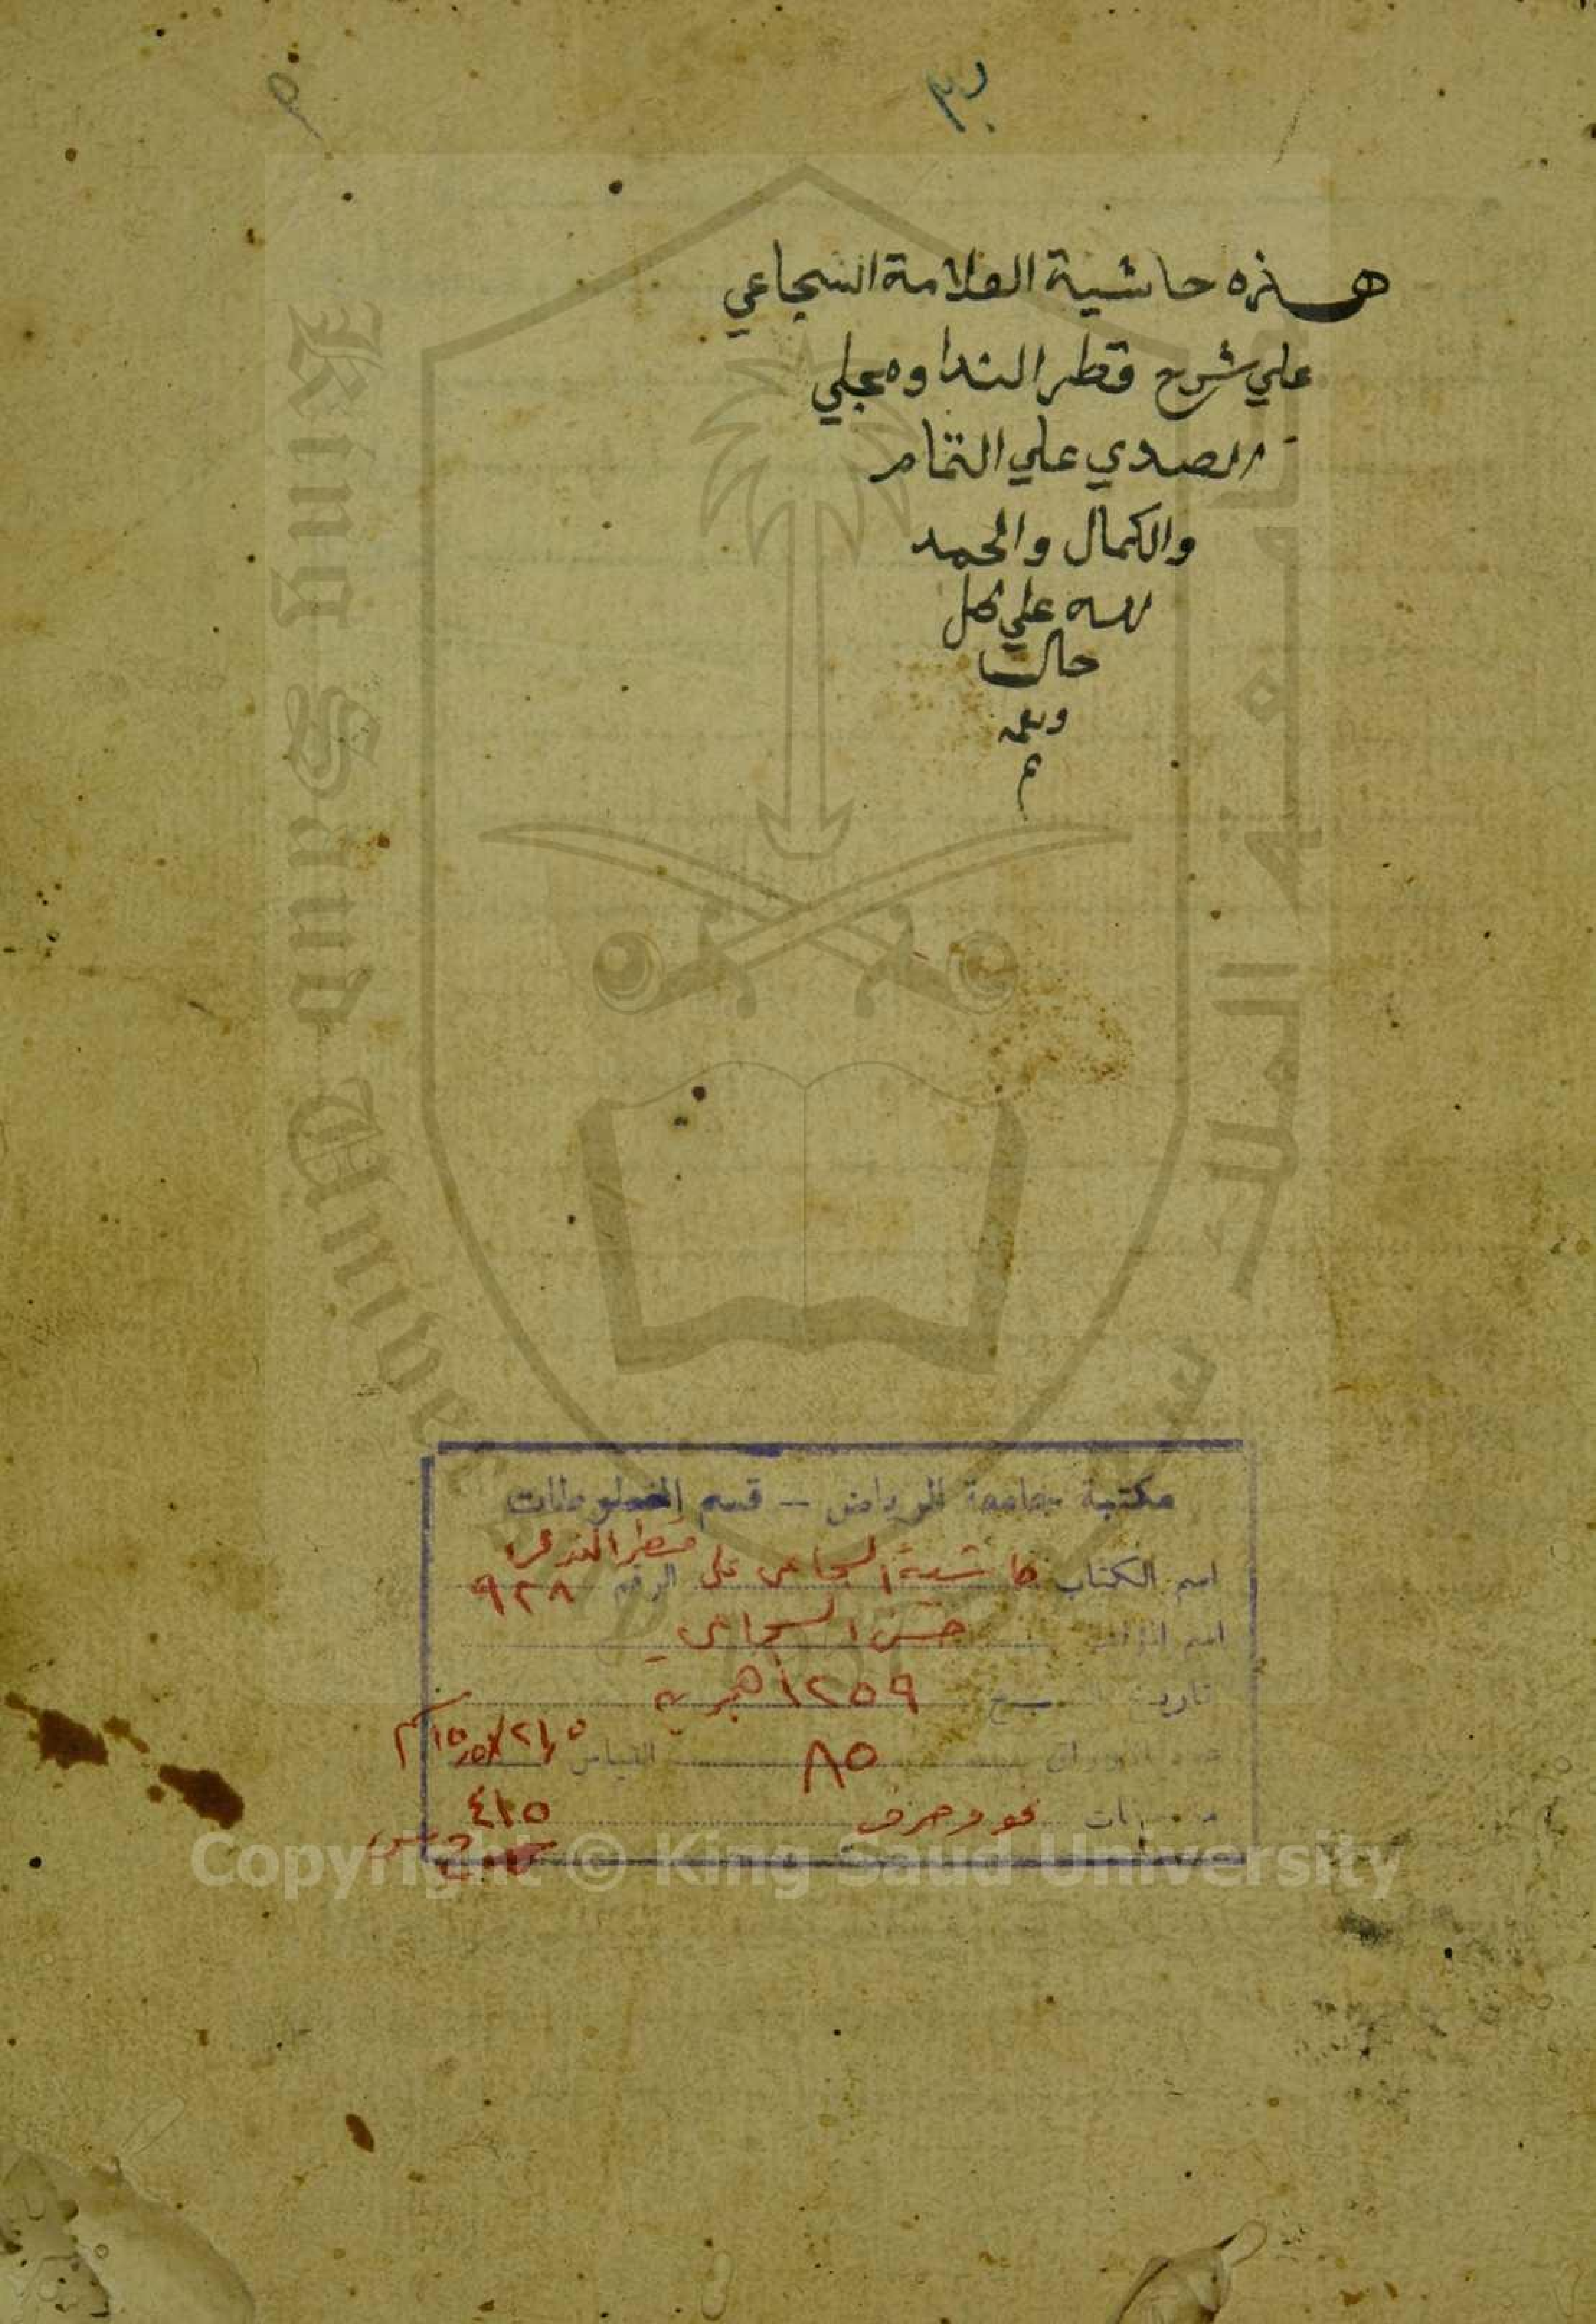 هذه حاشية العلامة السجاعي
علي شرح قطر الندا ومجلي
الصدي علي التمام
والكمال والحمد
لله علي كل
حال
م
مكتبة جامعة الرياض - قسم المخطوطات
اسم الكتاب حاشية السجاعي على قطر الندى الرقم ٩٢٨
اسم المؤلف حسن السجاعي
تاريخ النسخ ١٢٥٩ هجرية
عدد الأوراق ٨٥ القياس ٢١,٥ × ١٥,٥ سم
نحو وصرف ٤١٥
King Saud Unive
Copyright © King Saud University